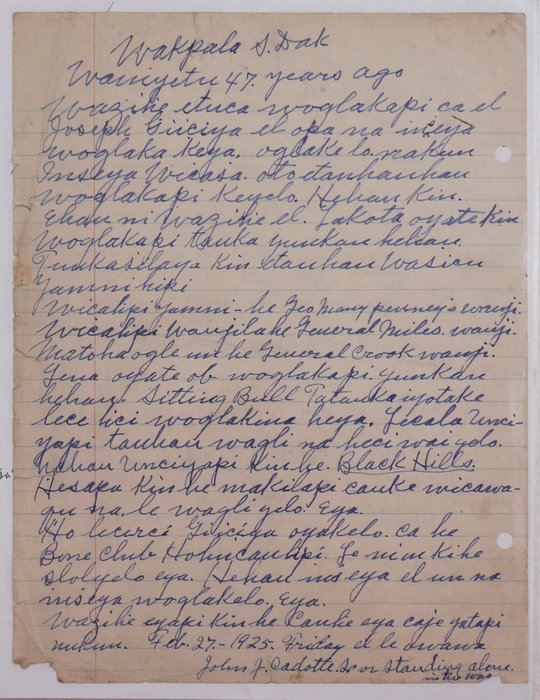 Wakpala S. Dak
Waniyetu 47. years ago
Wazihe etuca woglakapi ca el
Joseph Giiciya el opa na inseya
woglaka keya. oglake lo. nakun
Inseya Wicasa. otoetanhanhan
woglakapi Keyelo. Hehan Kin.
Ehan ni Wazihe el. Lakota oyate Kin
Woglakapi tanka yunkan hehan
Tunkasilaya Kin etanhan Wasicu
Yamni hipi
Wicahpi Yamni-he Geo wanji.
Wicahpi Wanjila he General Miles. wanji.
Matoha ogle un he General Crook wanji.
Lena oyate ob woglakapi. yunkan
hehan. Sitting Bull Tatanka iyotake
lece iici woglakina heya. Lecala Unci-
yapi tanhan wagli na heci wai yelo.
hehan Unciyapi Kin he. Black Hills.
Hesapa Kin he makilapi canke wicawa-
qu na. le wagli yelo. Eya.
Ho lecerci Giiciya oyakelo. ca he
Bone Club Hohucanhpi. Le ni un ki he
slolyelo eya. Hehan ins eya el un na
inseya woglakelo. Eya.
Wazihe eyapi kin he. Canhe eya caje yatapi
nakun. Feb. 27.- 1925. Friday el le owawa
John J. Cadotte. Sr or Standing alone.